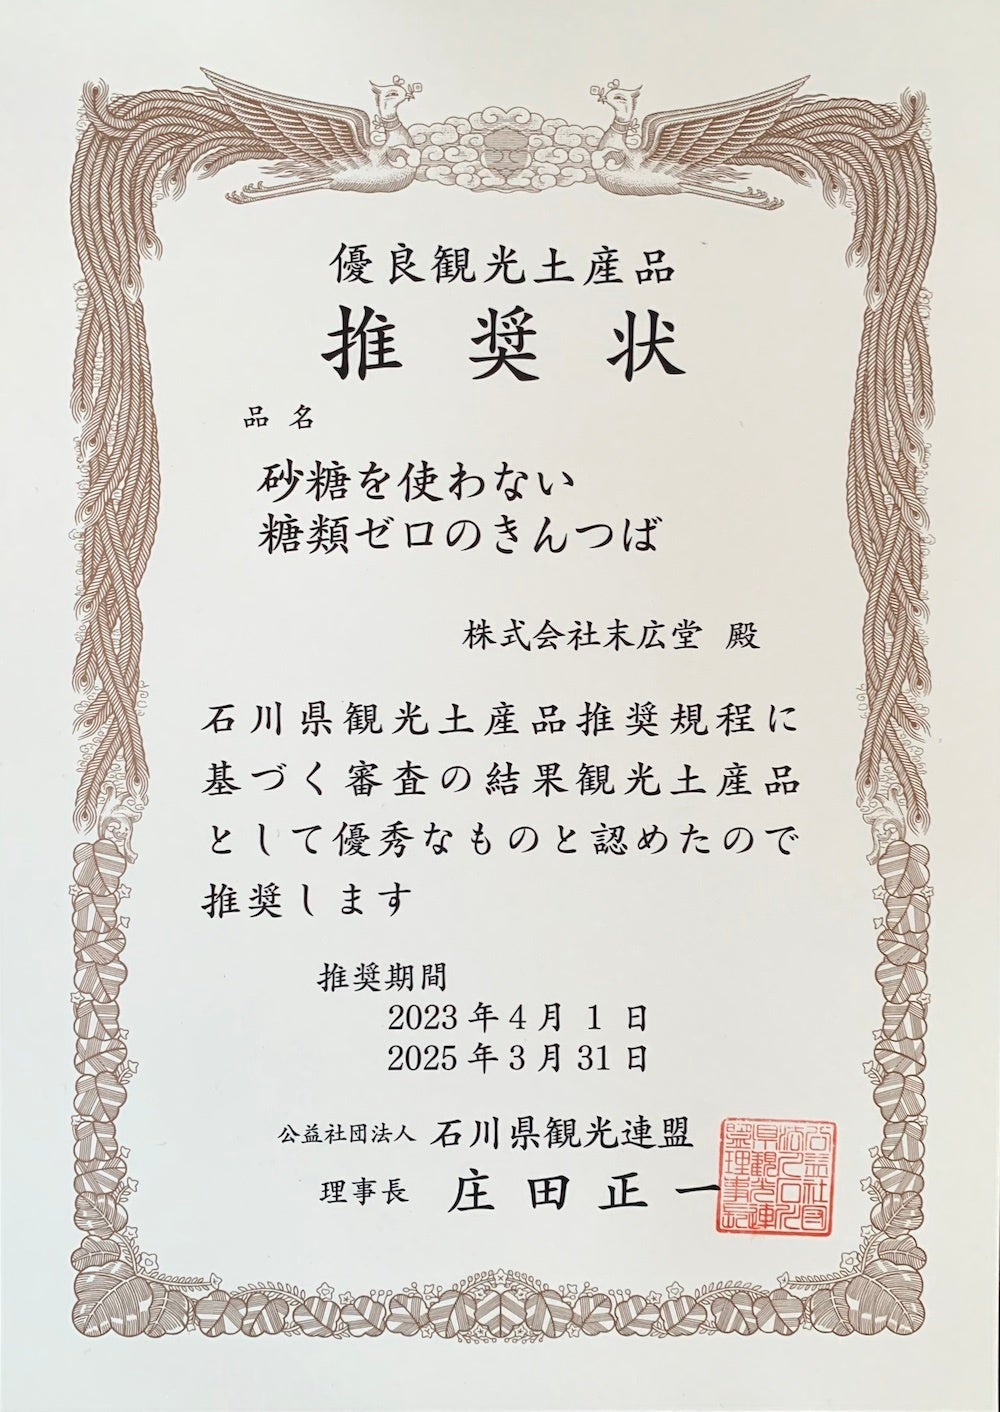 優良観光土産品
推奨状
品名
砂糖を使わない
糖類ゼロのきんつば
株式会社末広堂 殿
石川県観光土産品推奨規程に
基づく審査の結果観光土産品
として優秀なものと認めたので
推奨します
推奨期間
2023年4月1日
2025年3月31日
公益社団法人 石川県観光連盟
理事長 庄田正一